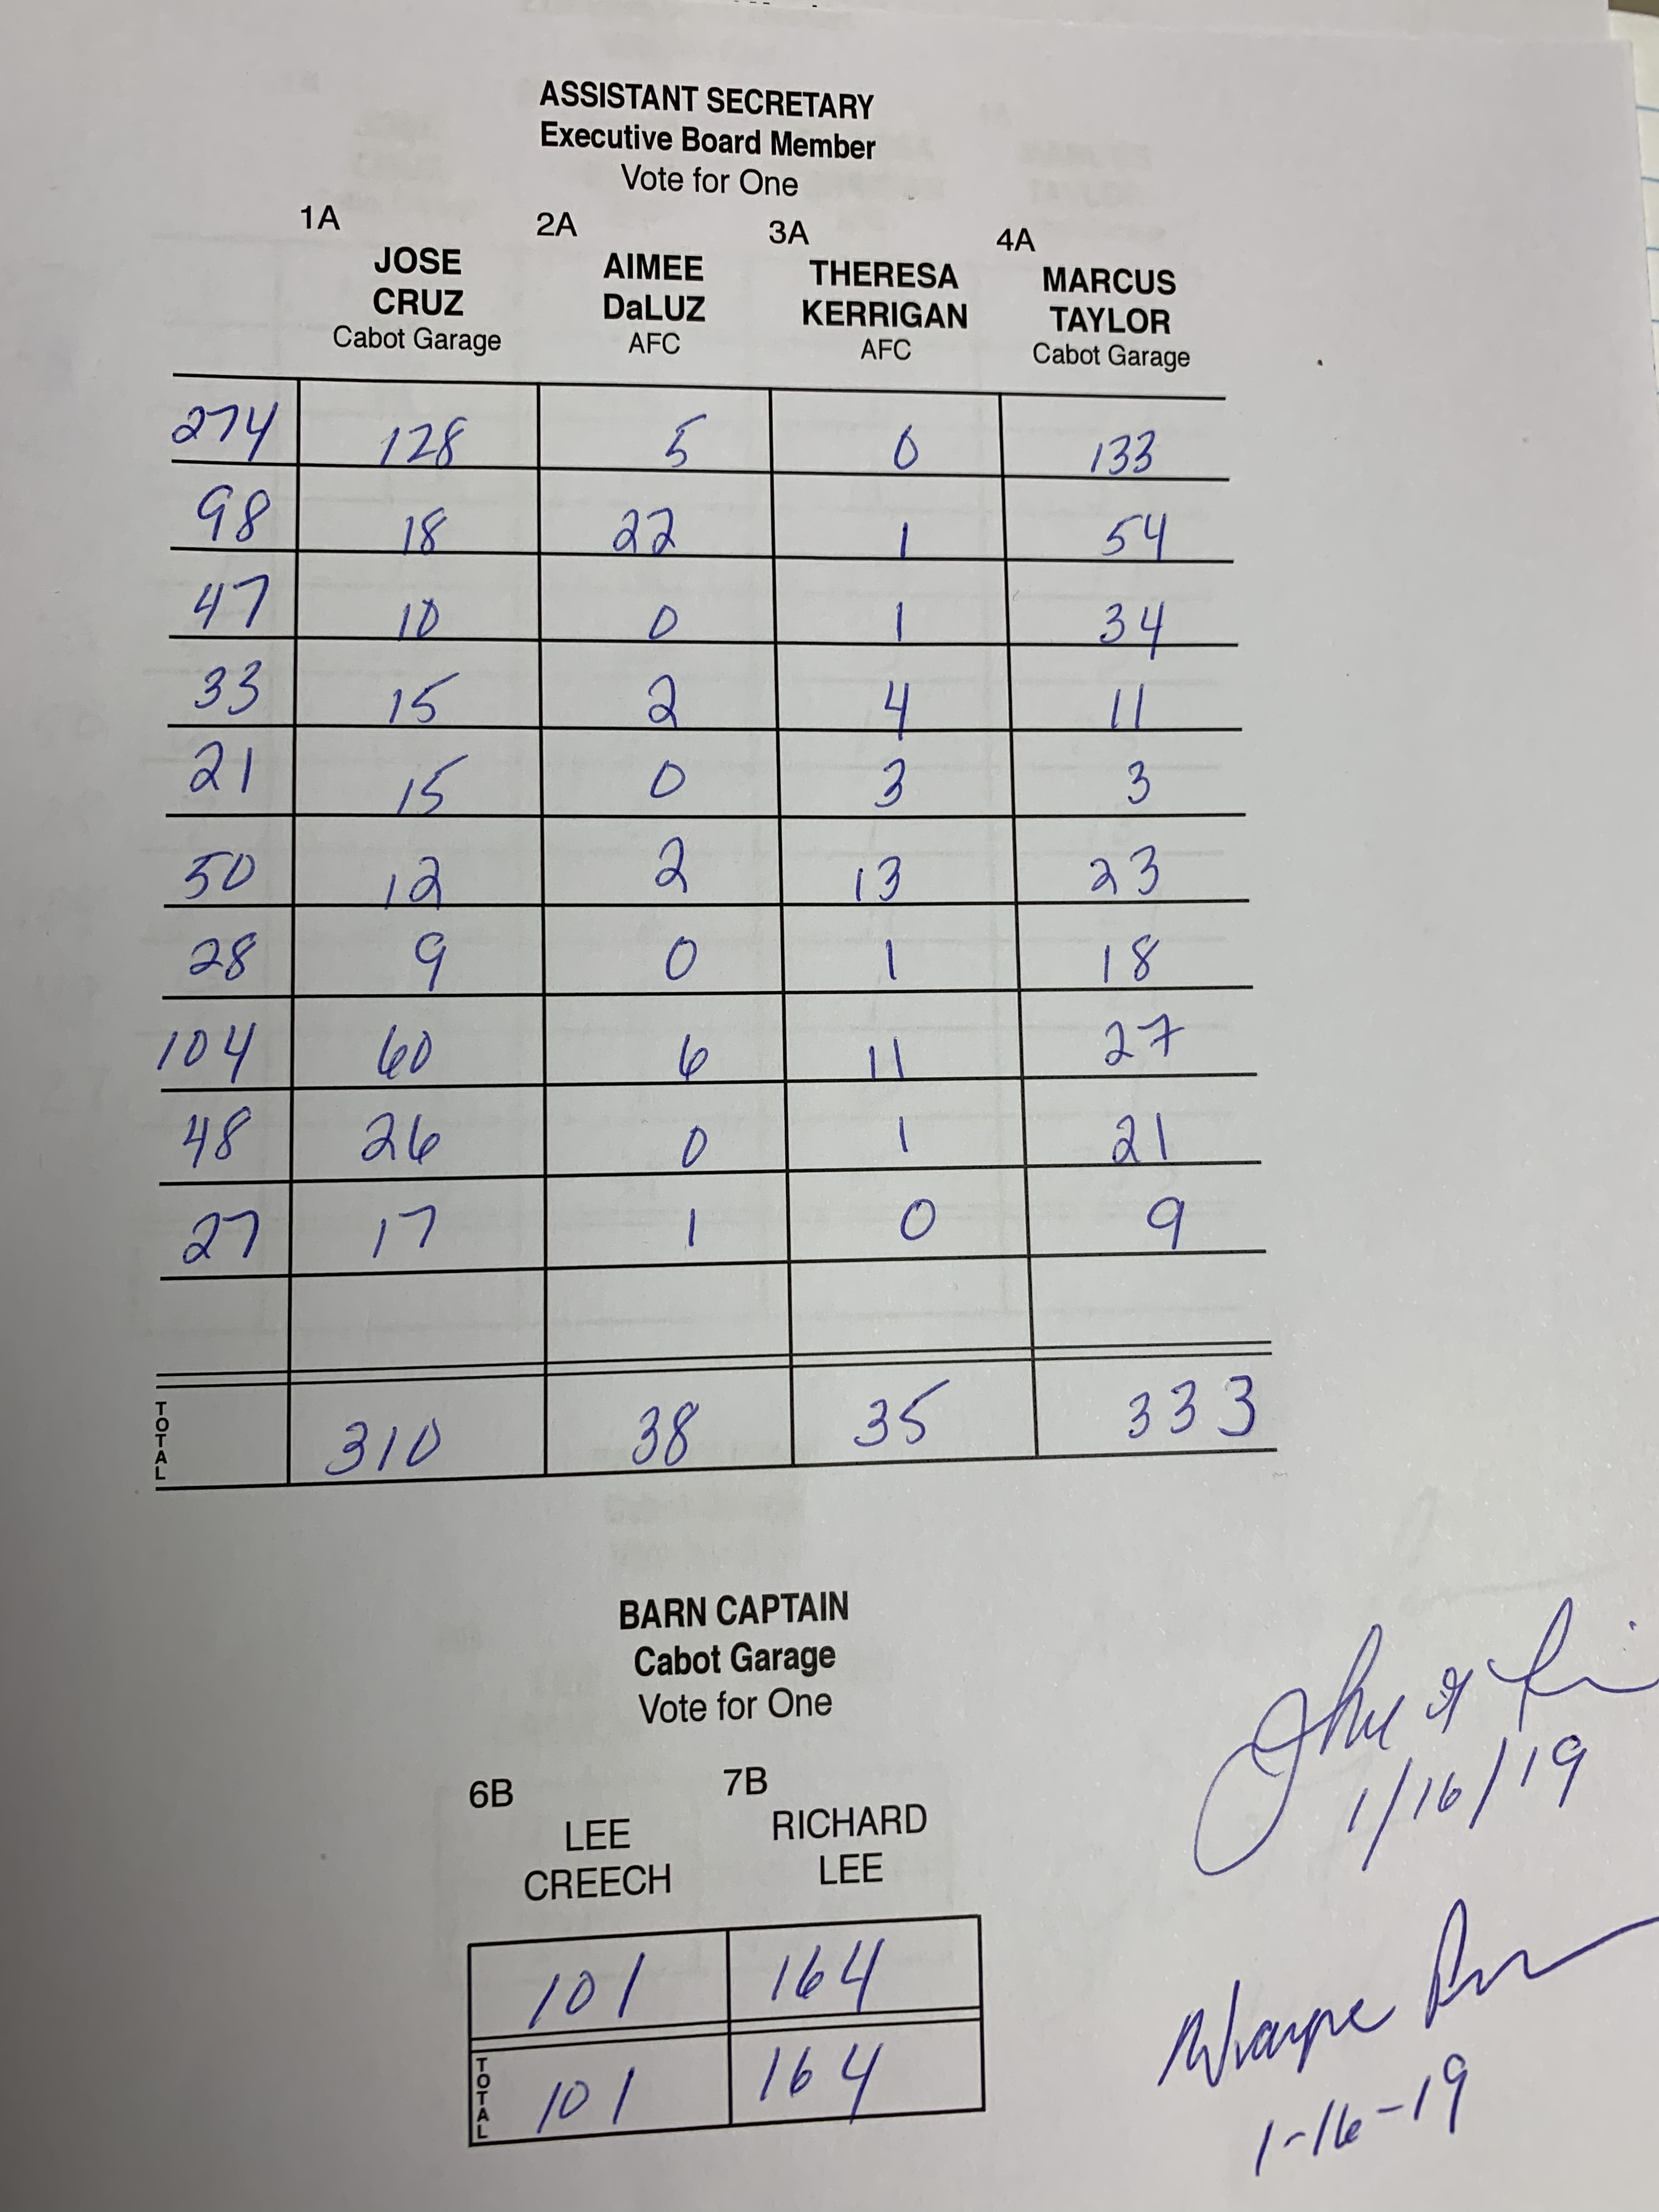 ASSISTANT SECRETARY
Executive Board Member
Vote for One
1A 2A 3A 4A
JOSE AIMEE THERESA MARCUS
CRUZ DaLUZ KERRIGAN TAYLOR
Cabot Garage AFC AFC Cabot Garage
274 128 5 0 133
98 18 22 1 54
47 10 0 1 34
33 15 2 4 11
21 15 0 3 3
50 12 2 13 23
28 9 0 1 18
104 60 6 11 27
48 26 0 1 21
27 17 1 0 9
TOTAL 310 38 35 333
BARN CAPTAIN
Cabot Garage
Vote for One
6B 7B
LEE RICHARD
CREECH LEE
101 164
TOTAL 101 164
1/16/19
1-16-19